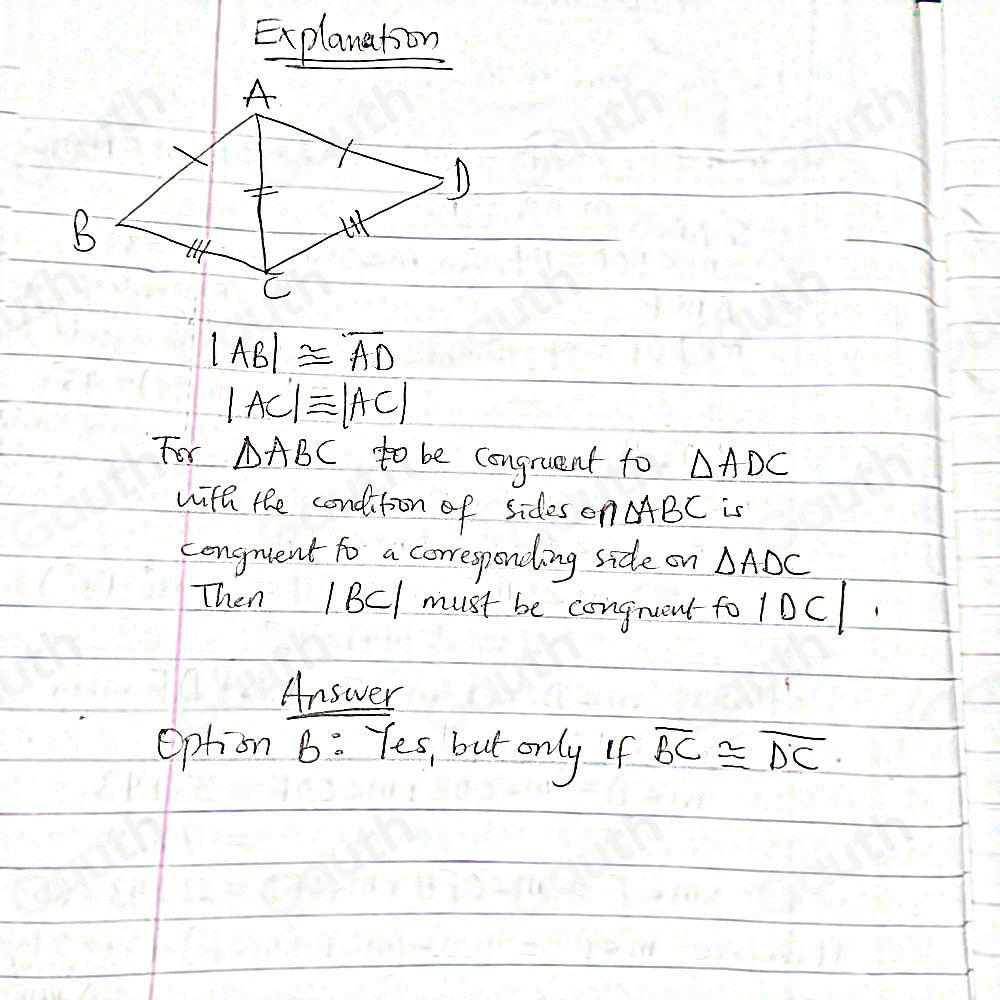 Explanation
A
D
B
C
|AB| ≅ A̅D̅
|AC| ≡ |AC|
For ΔABC to be congruent to ΔADC
with the condition of sides on ΔABC is
congruent to a corresponding side on ΔADC
Then |BC| must be congruent to |DC|.
Answer
Option B: Yes, but only if B̅C̅ ≅ D̅C̅.